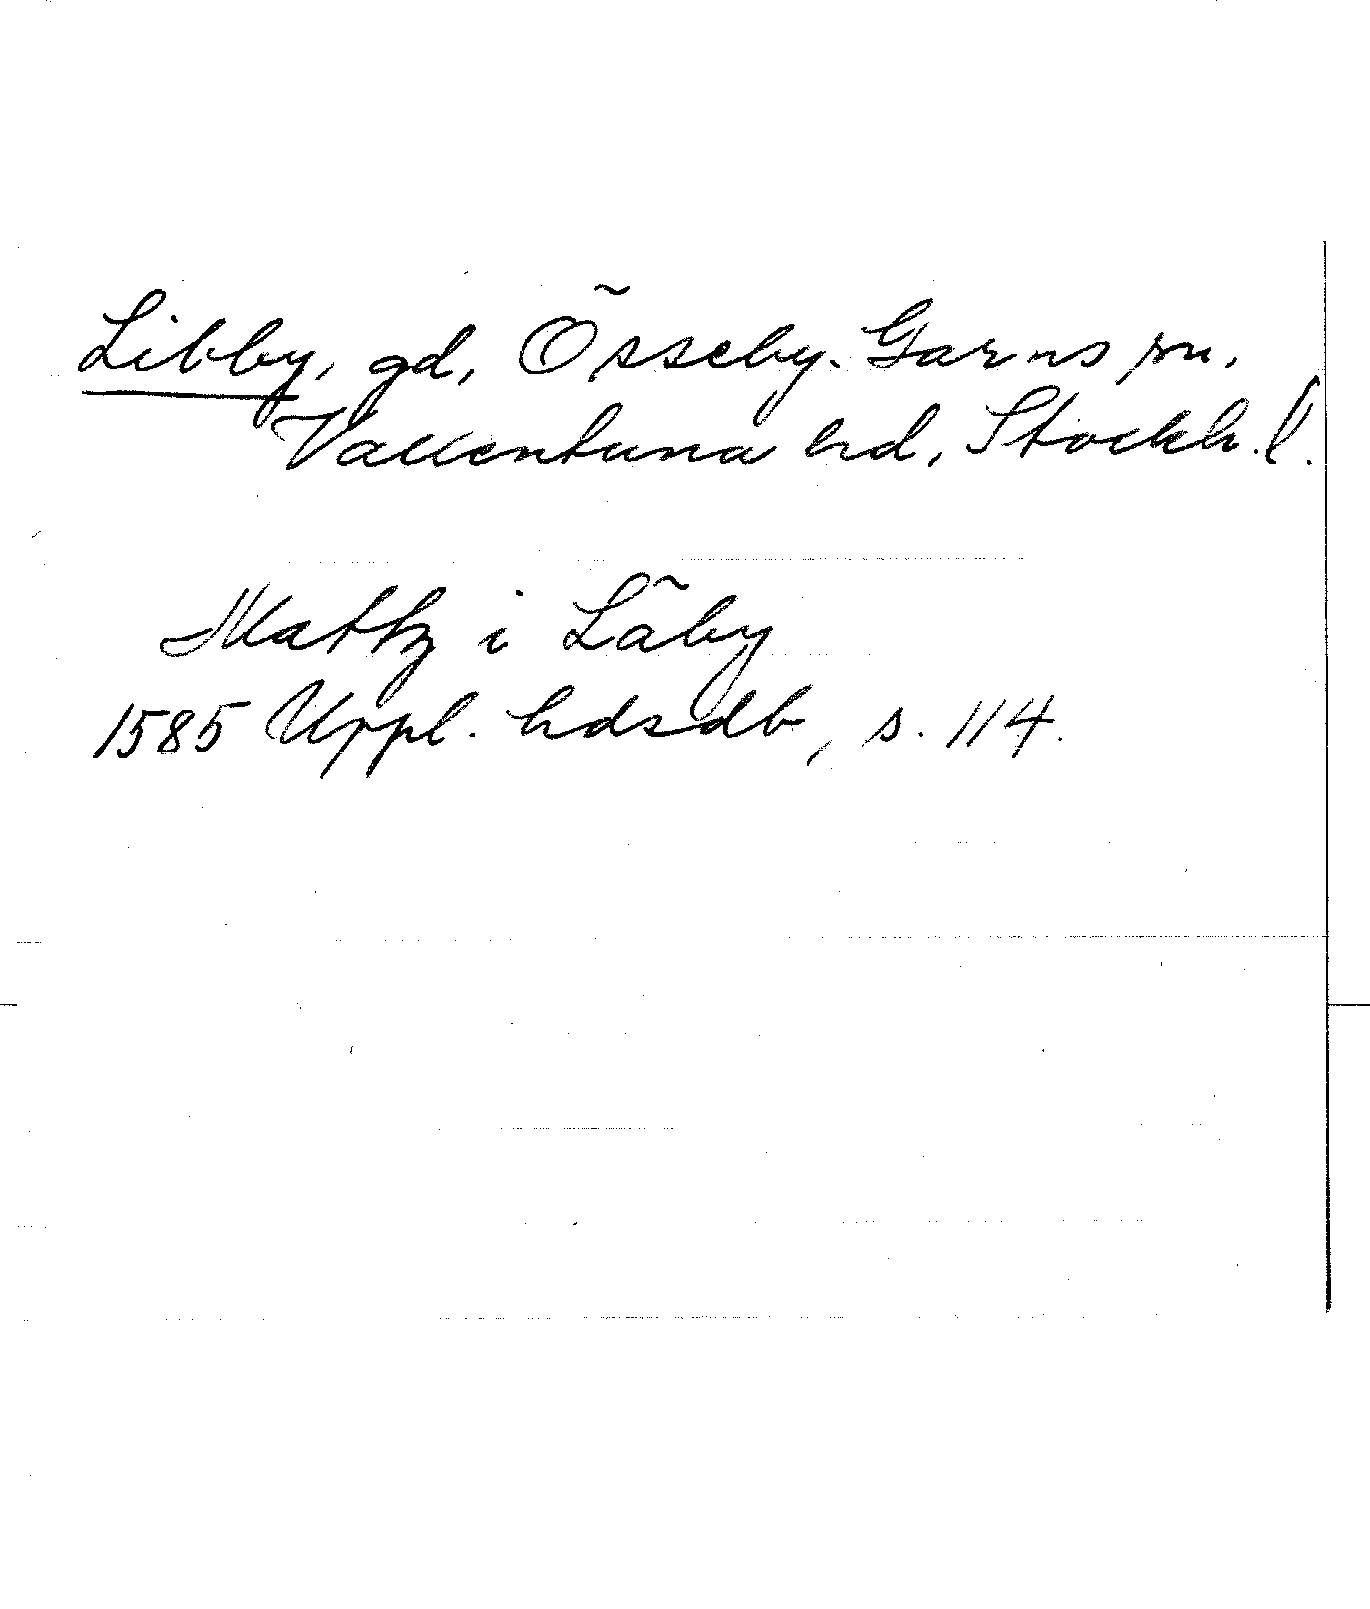 Libby, gd, Össeby-Garns sn,
Vallentuna hd, Stockh. l.
Mattz i Läby
1585 Uppl. hdsdb, s. 114.